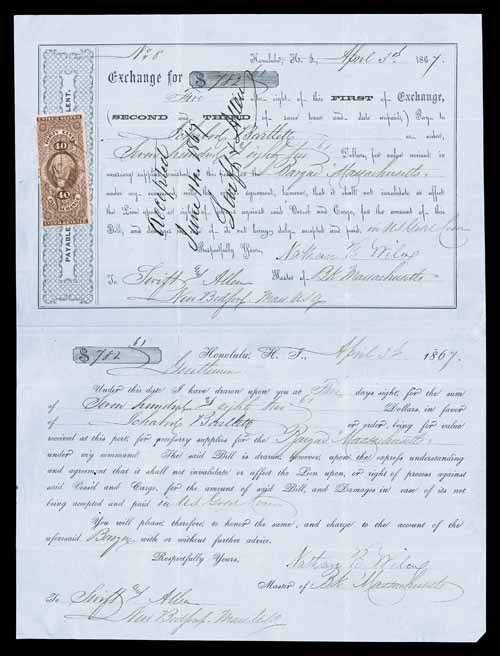 No 8 Honolulu, H. I., April 3d 1867.
Exchange for $ 782 61
Five days sight of this FIRST of Exchange,
(SECOND and THIRD of same tenor and date unpaid), Pay to
Bartlett or order,
Seven hundred & eighty two Dollars, for value received in
necessary supplies furnished at this port for the Barque Massachusetts
under my command with the agreement, however, that it shall not invalidate or affect
the Lien upon, or right of process against said Vessel and Cargo, for the amount of this
Bill, and damages in case of its not being duly accepted and paid in U.S. Gold Coin
Respectfully Yours, Nathan B Wilcox
To Swift & Allen Master of Bk Massachusetts
New Bedford Mass USA
PAYABLE
40
40
Accepted
June 14. 1867
Swift & Allen
$ 782 61 Honolulu, H. I., April 3d 1867.
Gentlemen
Under this date I have drawn upon you at Five days sight, for the sum
of Seven hundred & eighty two Dollars, in favor
of Bartlett or order, being for value
received at this port, for necessary supplies for the Barque Massachusetts
under my command. The said Bill is drawn, however, upon the express understanding
and agreement that it shall not invalidate or affect the Lien upon, or right of process against
said Vessel and Cargo, for the amount of said Bill, and Damages in case of its not
being accepted and paid in U.S. Gold Coin
You will please, therefore, to honor the same, and charge to the account of the
aforesaid Barque with or without further advice.
Respectfully Yours, Nathan B Wilcox
Master of Bk Massachusetts
To Swift & Allen
New Bedford Mass USA